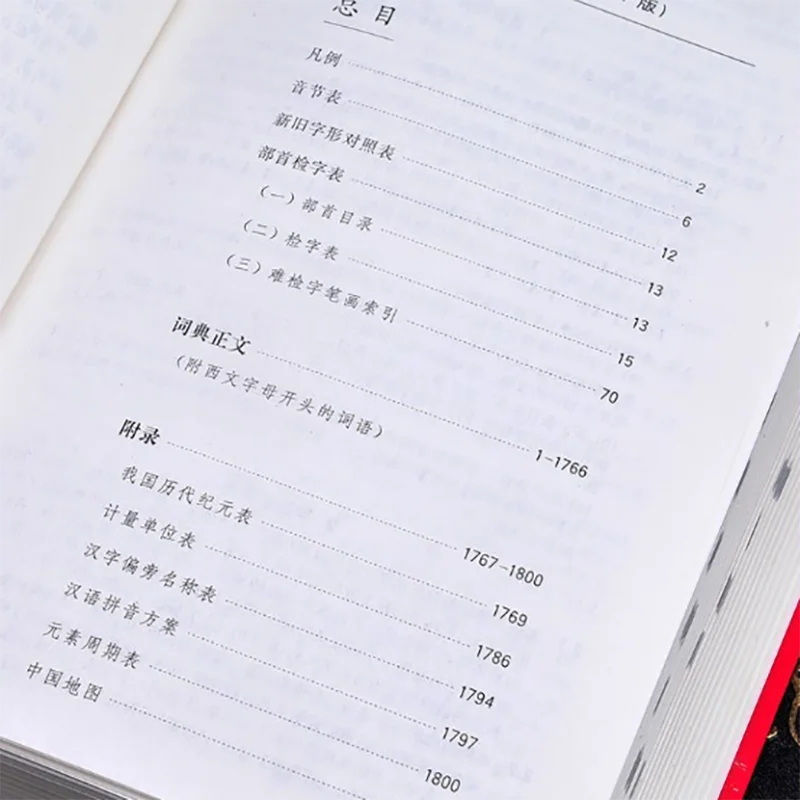 版)
总目
凡例 2
音节表 6
新旧字形对照表 12
部首检字表 13
(一) 部首目录 13
(二) 检字表 15
(三) 难检字笔画索引 70
词典正文 1-1766
(附西文字母开头的词语)
附录 1767-1800
我国历代纪元表 1769
计量单位表 1786
汉字偏旁名称表 1794
汉语拼音方案 1797
元素周期表 1800
中国地图